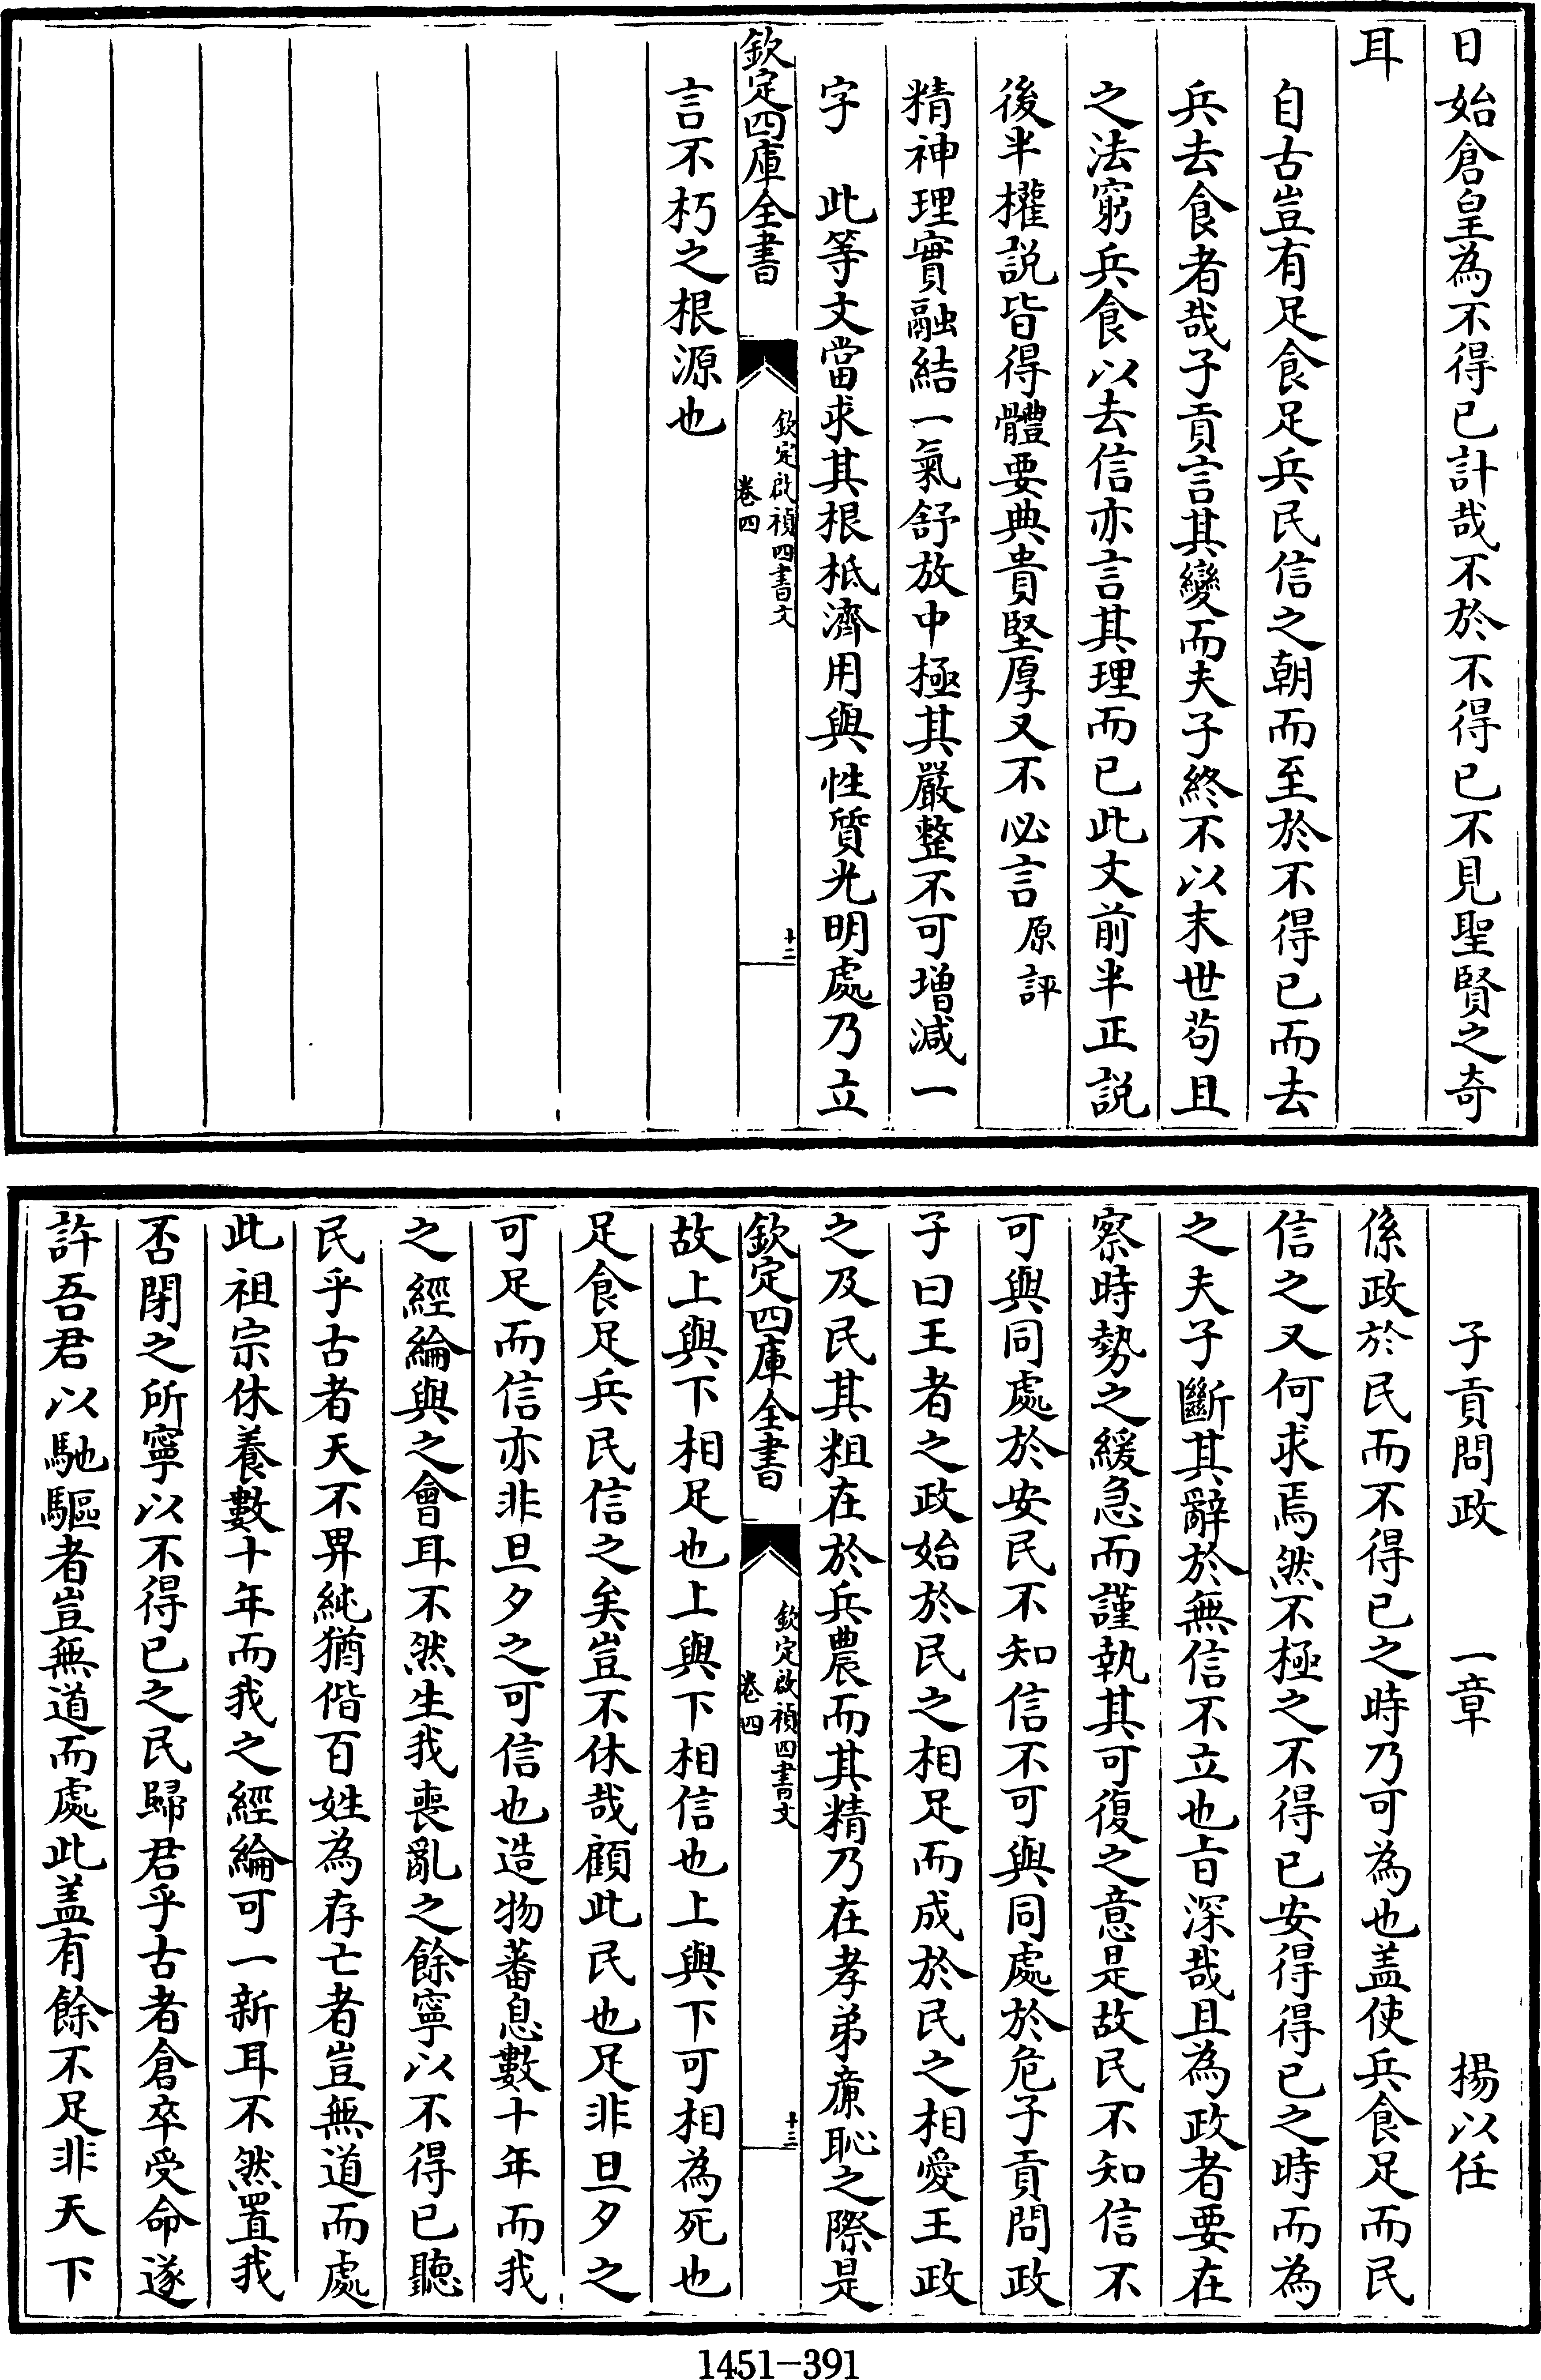 日始倉皇為不得已計哉不於不得已不見聖賢之奇
耳
自古豈有足食足兵民信之朝而至於不得已而去
兵去食者哉子貢言其變而夫子終不以末世苟且
之法窮兵食以去信亦言其理而已此文前半正説
後半權説皆得體要典貴堅厚又不必言原評
精神理實融結一氣舒放中極其嚴整不可増減一
字　此等文當求其根柢濟用與性質光明處乃立
欽定四庫全書
欽定啟禎四書文
卷四
十二
言不朽之根源也
子貢問政　一章　楊以任
係政於民而不得已之時乃可為也盖使兵食足而民
信之又何求焉然不極之不得已安得得已之時而為
之夫子斷其辭於無信不立也旨深哉且為政者要在
察時勢之緩急而謹執其可復之意是故民不知信不
可與同處於安民不知信不可與同處於危子貢問政
子曰王者之政始於民之相足而成於民之相愛王政
之及民其粗在於兵農而其精乃在孝弟亷恥之際是
欽定四庫全書
欽定啟禎四書文
卷四
十三
故上與下相足也上與下相信也上與下可相為死也
足食足兵民信之矣豈不休哉顧此民也足非旦夕之
可足而信亦非旦夕之可信也造物蕃息數十年而我
之經綸與之會耳不然生我喪亂之餘寧以不得已聽
民乎古者天不畀純猶偕百姓為存亡者豈無道而處
此祖宗休養數十年而我之經綸可一新耳不然置我
否閉之所寧以不得已之民歸君乎古者倉卒受命遂
許吾君以馳驅者豈無道而處此盖有餘不足非天下
1451-391